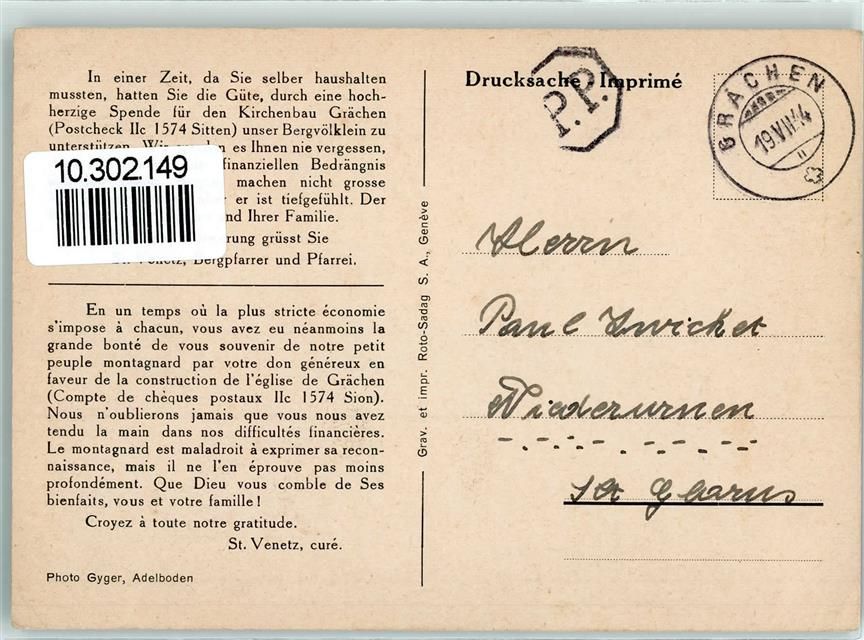 In einer Zeit, da Sie selber haushalten
mussten, hatten Sie die Güte, durch eine hoch-
herzige Spende für den Kirchenbau Grächen
(Postcheck IIc 1574 Sitten) unser Bergvölklein zu
unterstützen. Wir es Ihnen nie vergessen,
finanziellen Bedrängnis
machen nicht grosse
er ist tiefgefühlt. Der
nd Ihrer Familie.
rung grüsst Sie
Venetz, Bergpfarrer und Pfarrei.
10.302.149
En un temps où la plus stricte économie
s'impose à chacun, vous avez eu néanmoins la
grande bonté de vous souvenir de notre petit
peuple montagnard par votre don généreux en
faveur de la construction de l'église de Grächen
(Compte de chèques postaux IIc 1574 Sion).
Nous n'oublierons jamais que vous nous avez
tendu la main dans nos difficultés financières.
Le montagnard est maladroit à exprimer sa recon-
naissance, mais il ne l'en éprouve pas moins
profondément. Que Dieu vous comble de Ses
bienfaits, vous et votre famille !
Croyez à toute notre gratitude.
St. Venetz, curé.
Photo Gyger, Adelboden
Grav. et impr. Roto-Sadag S. A., Genève
Drucksache Imprimé
P.P.
GRÄCHEN
19.VII.44
Herrn
Paul Zwicket
Niederurnen
Kt Glarus